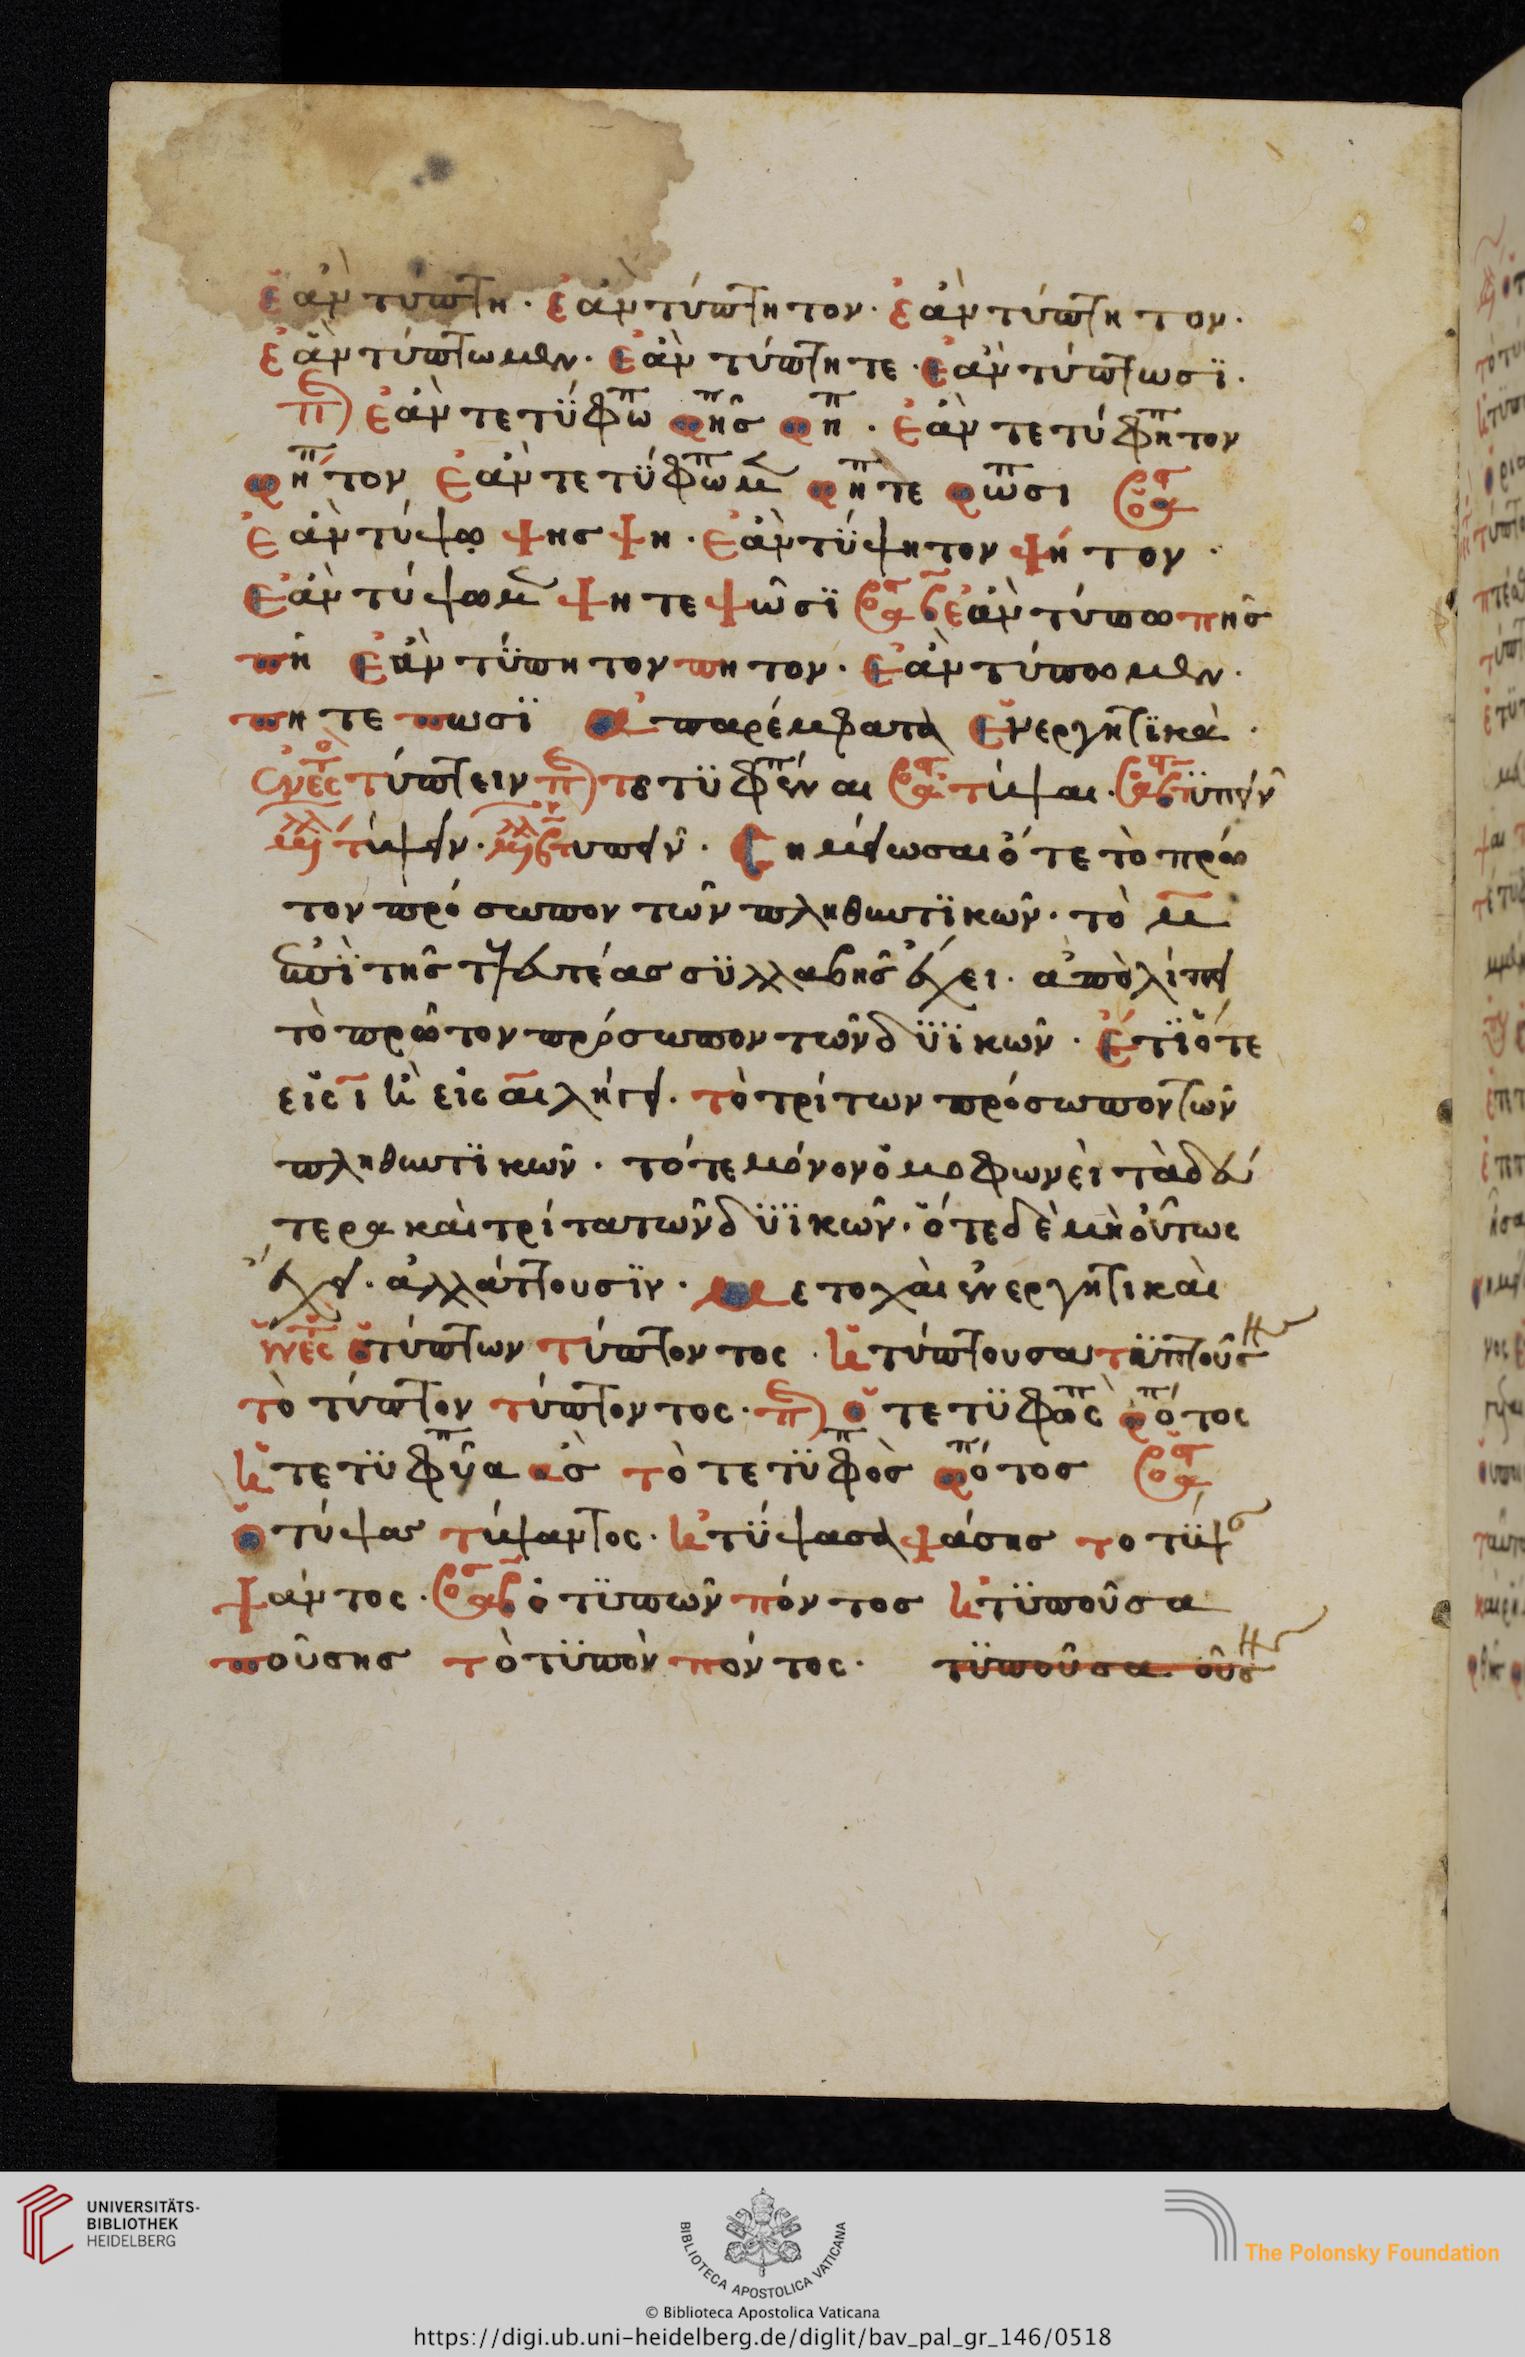 ἐὰν τύπτη· ἐὰν τύπτητον· ἐὰν τύπτητον·
ἐὰν τύπτωμεν· ἐὰν τύπτητε· ἐὰν τύπτωσϊ·
ἐὰν τετΰφω φῃς φη· ἐὰν τετύφητον
φητον ἐὰν τετΰφωμ φητε φωσι
ἐὰν τύψω ψησ ψη· ἐὰν τΰψητον ψήτον·
ἐὰν τύψωμ ψητε ψῶσϊ ἐὰν τύπω πῆσ
πῆ ἐὰν τΰπητον πητον· ἐὰν τύπωμεν·
πητε πωσϊ ἀπαρέμφατα ἐνεργητϊκὰ·
τύπτειν τετϋφέναι τύψαι·
τύψειν· τυπεῖν· Σημείωσαι ὅτε τὸ πρῶ
τον πρόσωπον τῶν πληθυντϊκῶν· τὸ μ
ἐπὶ τῆσ τελευτέασ σϋλλαβῆσ ἔχει· ἀπολίπει
τὸ πρῶτον πρόσωπον τῶν δϋϊκῶν· ἔτϊ ὅτε
εἰς ῑ κ εἰς ᾱ λήγει· τὸ τρίτων πρόσωπον τῶν
πληθυντϊκῶν· τότε μόνον ὁμοφωνεὶ τὰ δεύ
τερα καὶ τρίτα τῶν δϋϊκῶν· ὅτε δὲ μὴ οὕτως
ἔχει· ἀλλάττουσϊν· μετοχαὶ ἐνεργητικαὶ
ὁ τύπτων τύπτοντος· ἡ τύπτουσα τϋπτούσ
τὸ τύπτον τύπτοντος· ὁ τετϋφὼς φότος
ἡ τετϋφῦα ασ τὸ τετϋφὸσ φότοσ
ὁ τύψασ τύψαντος· ἡ τΰψασα ψάσησ το τΰψ
ψάντος· ὁ τϋπῶν πόντοσ ἡ τϋποῦσα
πούσησ τὸ τϋπὸν πόντος· τϋποῦσα· οὔσ
UNIVERSITÄTS-
BIBLIOTHEK
HEIDELBERG
BIBLIOTECA APOSTOLICA VATICANA
The Polonsky Foundation
© Biblioteca Apostolica Vaticana
https://digi.ub.uni-heidelberg.de/diglit/bav_pal_gr_146/0518